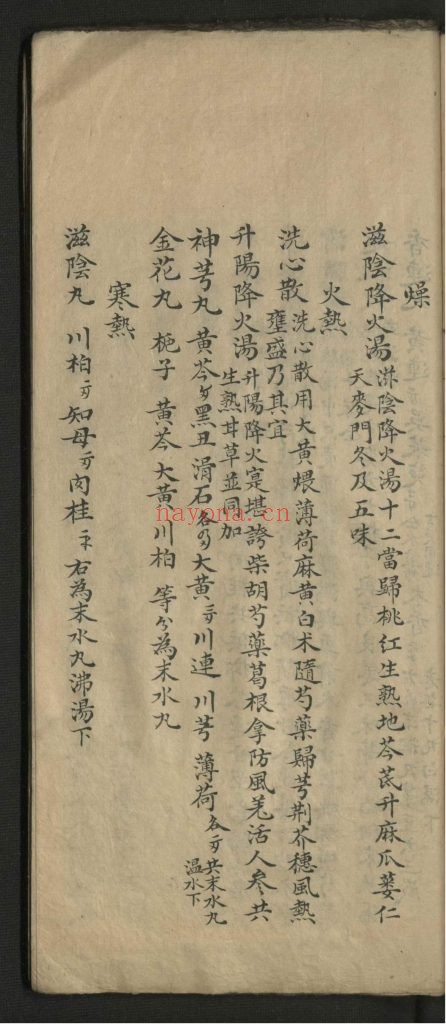 燥
滋陰降火湯 滋陰降火湯十二當歸桃紅生熟地芩茋升麻瓜蔞仁
天麥門冬及五味
火熱
洗心散 洗心散用大黃煨薄荷麻黃白术隨芍藥歸芎荆芥穗風熱
壅盛乃其宜
升陽降火湯 升陽降火寔堪誇柴胡芍藥葛根拿防風羌活人參共
生熟甘草並同加
神芎丸 黃芩 黑丑 滑石 大黃 川連 川芎 薄荷 共末水丸
温水下
金花丸 梔子 黃芩 大黃 川柏 等分為末水丸
寒熱
滋陰丸 川柏 知母 肉桂 右為末水丸沸湯下
hayona.cn